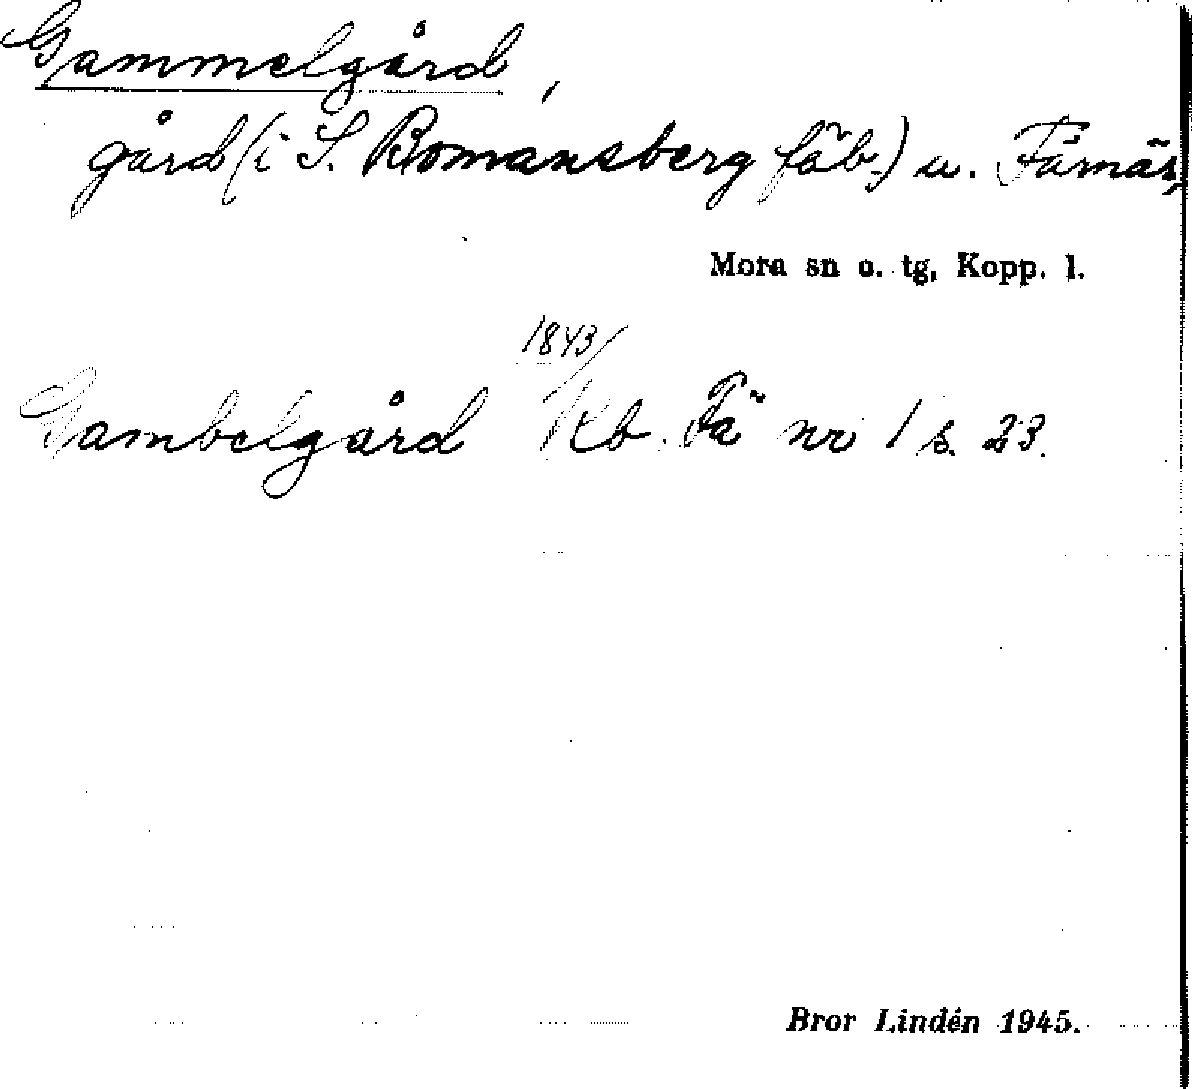 Gammelgård,
gård (i S. Bomansberg fäb.) u. Färnäs,
Mora sn o. tg, Kopp. l.
1843/
Gambelgård Kb. Fä nr 1 s. 23.
Bror Lindén 1945.